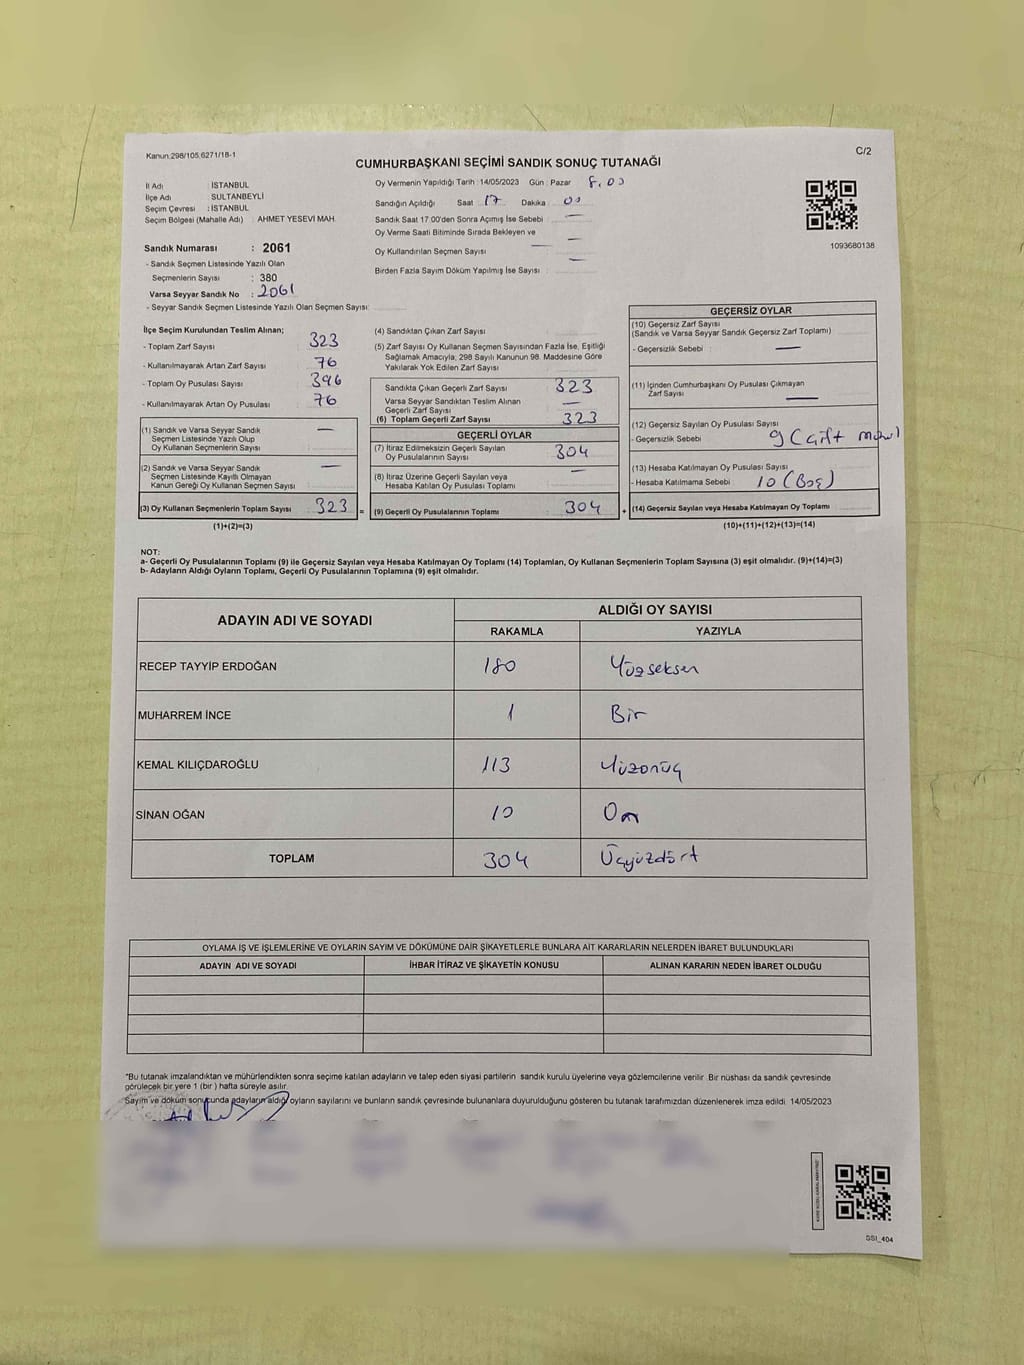 Kanun.298/105,6271/18-1
C/2
CUMHURBAŞKANI SEÇİMİ SANDIK SONUÇ TUTANAĞI
İl Adı : İSTANBUL
İlçe Adı : SULTANBEYLİ
Seçim Çevresi : İSTANBUL
Seçim Bölgesi (Mahalle Adı) : AHMET YESEVİ MAH.
Sandık Numarası : 2061
- Sandık Seçmen Listesinde Yazılı Olan
Seçmenlerin Sayısı : 380
Varsa Seyyar Sandık No : 2061
- Seyyar Sandık Seçmen Listesinde Yazılı Olan Seçmen Sayısı:
Oy Vermenin Yapıldığı Tarih : 14/05/2023 Gün : Pazar 8.00
Sandığın Açıldığı Saat 17 Dakika 00
Sandık Saat 17:00'den Sonra Açımış İse Sebebi —
Oy Verme Saati Bitiminde Sırada Bekleyen ve —
Oy Kullandırılan Seçmen Sayısı —
Birden Fazla Sayım Döküm Yapılmış İse Sayısı : —
1093680138
İlçe Seçim Kurulundan Teslim Alınan;
- Toplam Zarf Sayısı 323
- Kullanılmayarak Artan Zarf Sayısı 76
- Toplam Oy Pusulası Sayısı 396
- Kullanılmayarak Artan Oy Pusulası 76
(1) Sandık ve Varsa Seyyar Sandık —
Seçmen Listesinde Yazılı Olup
Oy Kullanan Seçmenlerin Sayısı
(2) Sandık ve Varsa Seyyar Sandık —
Seçmen Listesinde Kayıtlı Olmayan
Kanun Gereği Oy Kullanan Seçmen Sayısı
(3) Oy Kullanan Seçmenlerin Toplam Sayısı 323 =
(1)+(2)=(3)
(4) Sandıktan Çıkan Zarf Sayısı
(5) Zarf Sayısı Oy Kullanan Seçmen Sayısından Fazla İse, Eşitliği
Sağlamak Amacıyla, 298 Sayılı Kanunun 98. Maddesine Göre
Yakılarak Yok Edilen Zarf Sayısı
Sandıkta Çıkan Geçerli Zarf Sayısı 323
Varsa Seyyar Sandıktan Teslim Alınan
Geçerli Zarf Sayısı —
(6) Toplam Geçerli Zarf Sayısı 323
GEÇERLİ OYLAR
(7) İtiraz Edilmeksizin Geçerli Sayılan
Oy Pusulalarının Sayısı 304
(8) İtiraz Üzerine Geçerli Sayılan veya —
Hesaba Katılan Oy Pusulası Toplamı
(9) Geçerli Oy Pusulalarının Toplamı 304 +
GEÇERSİZ OYLAR
(10) Geçersiz Zarf Sayısı
(Sandık ve Varsa Seyyar Sandık Geçersiz Zarf Toplamı)
- Geçersizlik Sebebi : —
(11) İçinden Cumhurbaşkanı Oy Pusulası Çıkmayan
Zarf Sayısı —
(12) Geçersiz Sayılan Oy Pusulası Sayısı
- Geçersizlik Sebebi 9 (Çift
(13) Hesaba Katılmayan Oy Pusulası Sayısı
- Hesaba Katılmama Sebebi : 10 (Boş)
(14) Geçersiz Sayılan veya Hesaba Katılmayan Oy Toplamı
(10)+(11)+(12)+(13)=(14)
NOT:
a- Geçerli Oy Pusulalarının Toplamı (9) ile Geçersiz Sayılan veya Hesaba Katılmayan Oy Toplamı (14) Toplamları, Oy Kullanan Seçmenlerin Toplam Sayısına (3) eşit olmalıdır. (9)+(14)=(3)
b- Adayların Aldığı Oyların Toplamı, Geçerli Oy Pusulalarının Toplamına (9) eşit olmalıdır.
ADAYIN ADI VE SOYADI
ALDIĞI OY SAYISI
RAKAMLA YAZIYLA
RECEP TAYYİP ERDOĞAN 180 Yüzseksen
MUHARREM İNCE 1 Bir
KEMAL KILIÇDAROĞLU 113 Yüzonüç
SİNAN OĞAN 10 On
TOPLAM 304 Üçyüzdört
OYLAMA İŞ VE İŞLEMLERİNE VE OYLARIN SAYIM VE DÖKÜMÜNE DAİR ŞİKAYETLERLE BUNLARA AİT KARARLARIN NELERDEN İBARET BULUNDUKLARI
ADAYIN ADI VE SOYADI İHBAR İTİRAZ VE ŞİKAYETİN KONUSU ALINAN KARARIN NEDEN İBARET OLDUĞU
"Bu tutanak imzalandıktan ve mühürlendikten sonra seçime katılan adayların ve talep eden siyasi partilerin sandık kurulu üyelerine veya gözlemcilerine verilir. Bir nüshası da sandık çevresinde
görülecek bir yere 1 (bir ) hafta süreyle asılır.
Sayım ve döküm sonucunda adayların aldığı oyların sayılarını ve bunların sandık çevresinde bulunanlara duyurulduğunu gösteren bu tutanak tarafımızdan düzenlenerek imza edildi. 14/05/2023
SSI_404